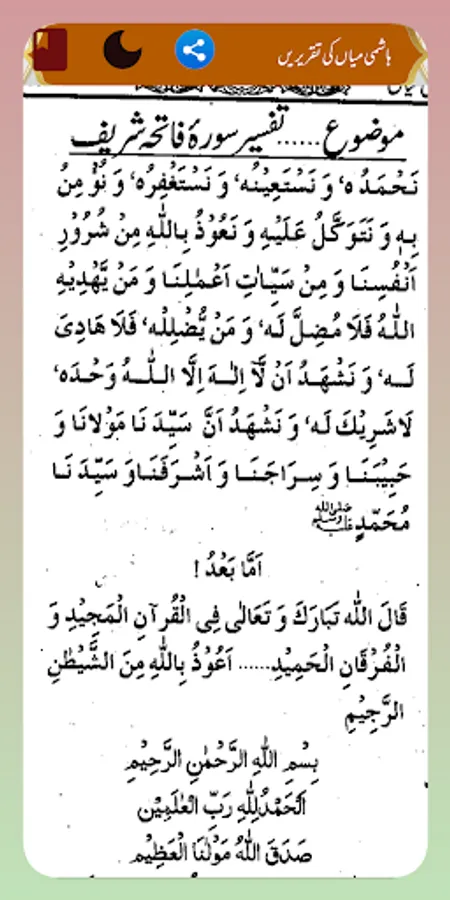 ہاشمی میاں کی تقریریں
موضوع......تفسیر سورۂ فاتحہ شریف
نَحْمَدُہٗ وَ نَسْتَعِیْنُہٗ وَ نَسْتَغْفِرُہٗ وَ نُؤْمِنُ
بِہٖ وَ نَتَوَکَّلُ عَلَیْہِ وَ نَعُوْذُ بِاللّٰہِ مِنْ شُرُوْرِ
اَنْفُسِنَا وَ مِنْ سَیِّاٰتِ اَعْمٰلِنَا وَ مَنْ یَّھْدِیْہِ
اللّٰہُ فَلَا مُضِلَّ لَہٗ وَ مَنْ یُّضْلِلْہُ فَلَا ھَادِیَ
لَہٗ وَ نَشْھَدُ اَنْ لَّآ اِلٰہَ اِلَّا اللّٰہُ وَحْدَہٗ
لَا شَرِیْكَ لَہٗ وَ نَشْھَدُ اَنَّ سَیِّدَ نَا مَوْلَانَا وَ
حَبِیْبَنَا وَ سِرَاجَنَا وَ اَشْرَفَنَا وَ سَیِّدَ نَا
مُحَمَّدٍ ﷺ
اَمَّا بَعْدُ !
قَالَ اللّٰہ تَبَارَكَ وَ تَعَالٰی فِی الْقُرآنِ الْمَجِیْدِ وَ
الْفُرْقَانِ الْحَمِیْدِ...... اَعُوْذُ بِاللّٰہِ مِنَ الشَّیْطٰنِ
الرَّجِیْمِ
بِسْمِ اللّٰہِ الرَّحْمٰنِ الرَّحِیْمِ
اَلْحَمْدُلِلّٰہِ رَبِّ الْعٰلَمِیْن
صَدَقَ اللّٰہُ مَوْلٰنَا الْعَظِیْم